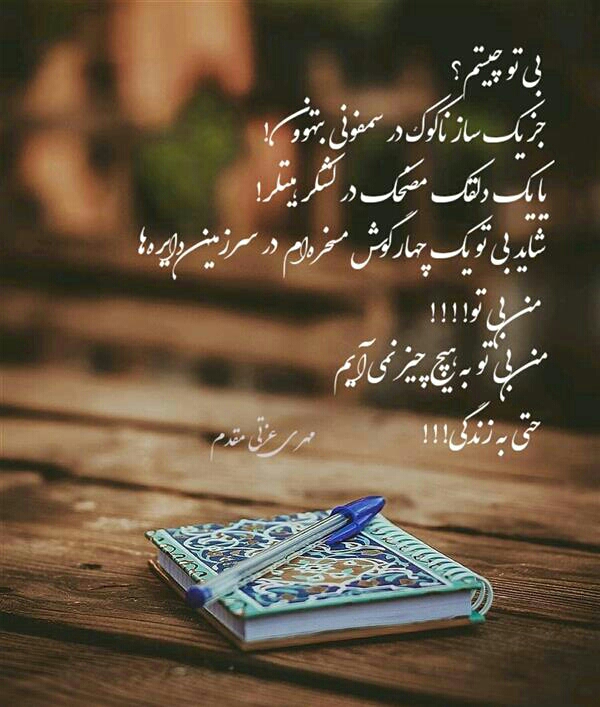 بی تو چیستم؟
جز یک ساز ناکوک در سمفونی بتهوون!
یا یک دلقک مضحک در لشکر هیتلر!
شاید بی تو یک چهارگوش مسخره‌ام در سرزمین دایره‌ها
من بی تو!!!!
من بی تو به هیچ چیز نمی‌آیم
حتی به زندگی!!!
مهدی عزتی مقدم